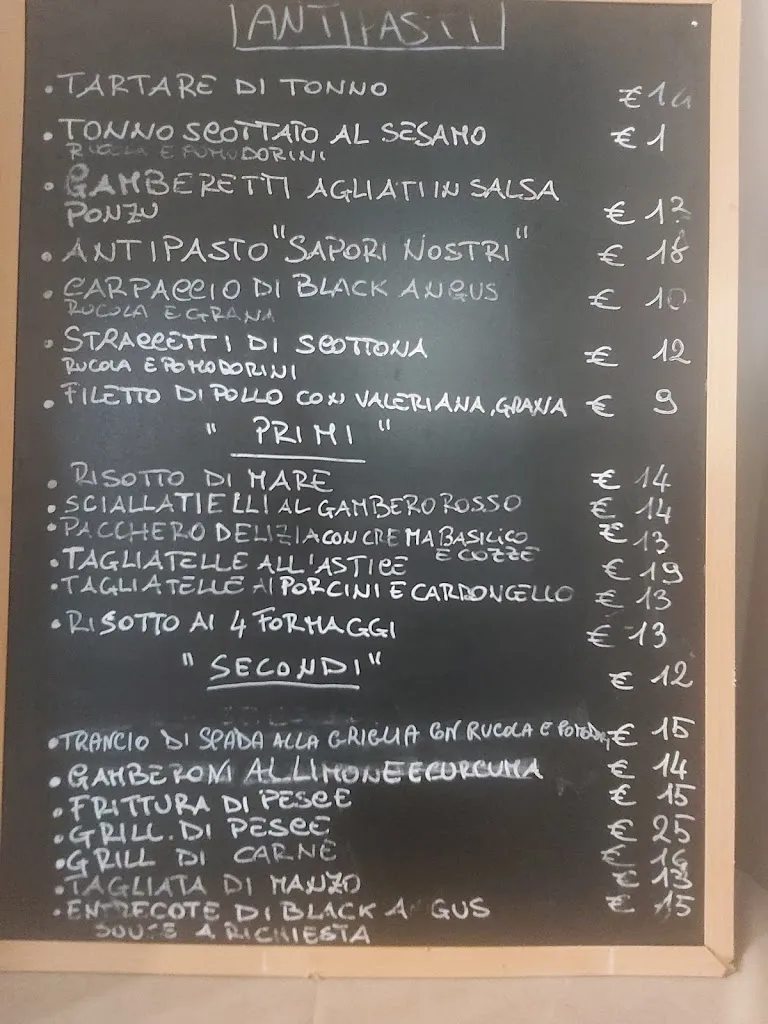 ANTIPASTI
• TARTARE DI TONNO €
• TONNO SCOTTATO AL SESAMO € 1
RUCOLA E POMODORINI
• GAMBERETTI AGLIATI IN SALSA
PONZU € 13
• ANTIPASTO "SAPORI NOSTRI" € 18
• CARPACCIO DI BLACK ANGUS € 10
RUCOLA E GRANA
• STRACCETTI DI SCOTTONA € 12
RUCOLA E POMODORINI
• FILETTO DI POLLO CON VALERIANA, GRANA € 9
" PRIMI "
• RISOTTO DI MARE € 14
• SCIALLATIELLI AL GAMBERO ROSSO € 14
• PACCHERO DELIZIA CON CREMA BASILICO € 13
E COZZE
• TAGLIATELLE ALL'ASTICE € 19
• TAGLIATELLE AI PORCINI E CARDONCELLO € 13
• RISOTTO AI 4 FORMAGGI € 13
" SECONDI " € 12
• TRANCIO DI SPADA ALLA GRIGLIA CON RUCOLA E € 15
• GAMBERONI ALLIMONE E CURCUMA € 14
• FRITTURA DI PESCE € 15
• GRILL. DI PESCE € 25
• GRILL DI CARNE € 16
• TAGLIATA DI MANZO € 13
• ENTRECOTE DI BLACK ANGUS € 15
A RICHIESTA